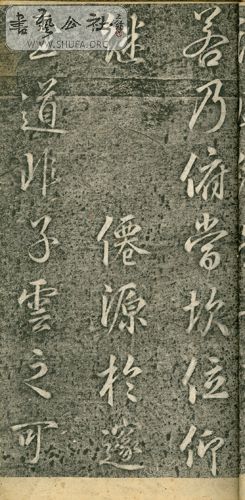 書藝公社
WWW.SHUFA.ORG
若乃俯當坎位仰
僊源於邃
道非子雲之可